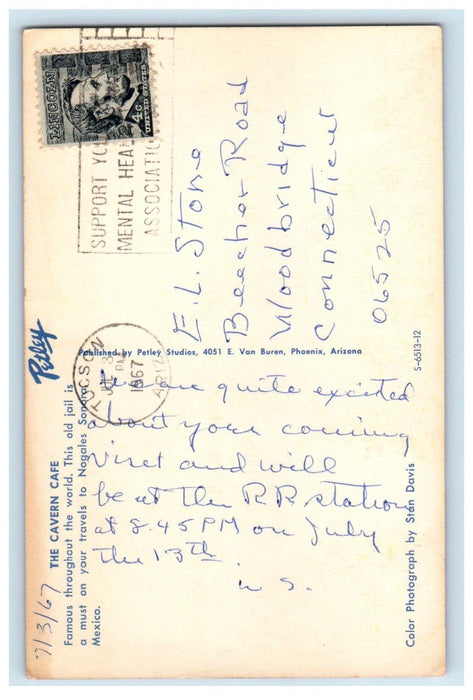 LINCOLN
4¢
UNITED STATES
SUPPORT YO
MENTAL HEA
ASSOCIATIO
TUCSON
ARIZ
JUL 3
PM
1967
E. L. Stone
Beecher Road
Woodbridge
Connecticut
06525
Petley
Published by Petley Studios, 4051 E. Van Buren, Phoenix, Arizona
S-6513-12
THE CAVERN CAFE
Famous throughout the world. This old jail is
a must on your travels to Nogales Sonora,
Mexico.
7/3/67
are quite excited
about your coming
viset and will
be at the RR station
at 8.45 PM on July
the 13th.
W S.
Color Photograph by Stan Davis